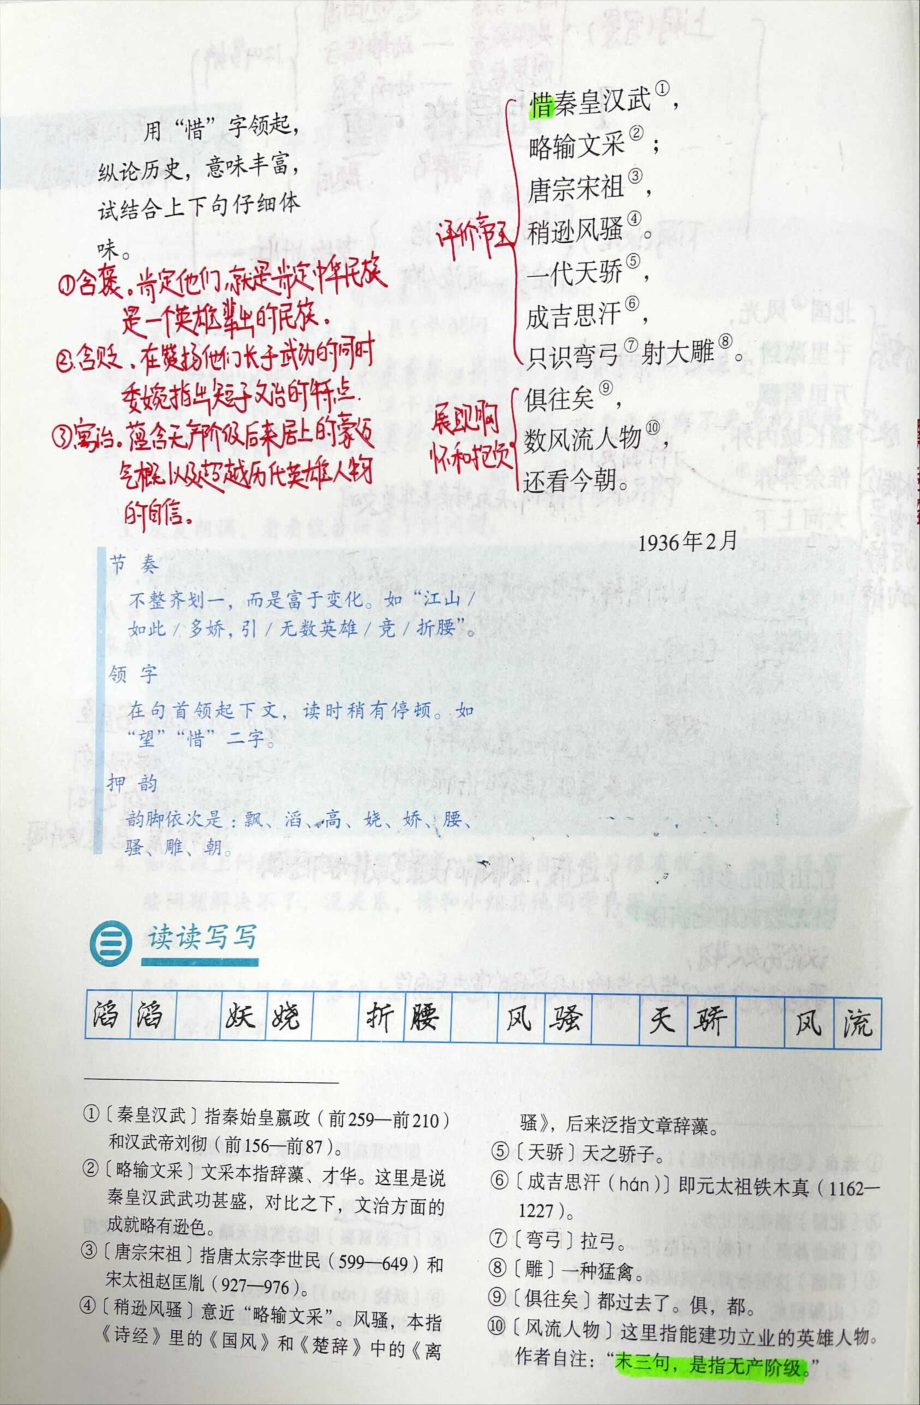 用“惜”字领起，
纵论历史，意味丰富，
试结合上下句仔细体
味。
①含褒。肯定他们，就是肯定中华民族
是一个英雄辈出的民族。
②含贬、在赞扬他们长于武功的同时
委婉指出短于文治的特点.
③寓论。蕴含无产阶级后来居上的豪迈
气概以及超越历代英雄人物
的自信。
惜秦皇汉武①，
略输文采②；
唐宗宋祖③，
稍逊风骚④。
一代天骄⑤，
成吉思汗⑥，
只识弯弓⑦射大雕⑧。
俱往矣⑨，
数风流人物⑩，
还看今朝。
评价帝王
展现胸
怀和抱负
1936年2月
节奏
不整齐划一，而是富于变化。如“江山/
如此/多娇，引/无数英雄/竞/折腰”。
领字
在句首领起下文，读时稍有停顿。如
“望”“惜”二字。
押韵
韵脚依次是：飘、滔、高、娆、娇、腰、
骚、雕、朝。
三 读读写写
滔滔 妖娆 折腰 风骚 天骄 风流
①〔秦皇汉武〕指秦始皇嬴政（前259—前210）
和汉武帝刘彻（前156—前87）。
②〔略输文采〕文采本指辞藻、才华。这里是说
秦皇汉武武功甚盛，对比之下，文治方面的
成就略有逊色。
③〔唐宗宋祖〕指唐太宗李世民（599—649）和
宋太祖赵匡胤（927—976）。
④〔稍逊风骚〕意近“略输文采”。风骚，本指
《诗经》里的《国风》和《楚辞》中的《离
骚》，后来泛指文章辞藻。
⑤〔天骄〕天之骄子。
⑥〔成吉思汗（hán）〕即元太祖铁木真（1162—
1227）。
⑦〔弯弓〕拉弓。
⑧〔雕〕一种猛禽。
⑨〔俱往矣〕都过去了。俱，都。
⑩〔风流人物〕这里指能建功立业的英雄人物。
作者自注：“末三句，是指无产阶级。”